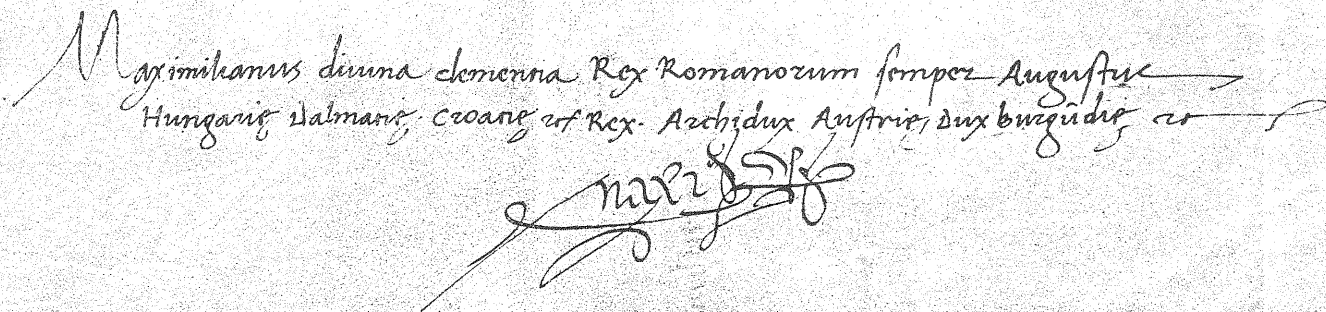 Maximilianus divina clementia Rex Romanorum semper Augustus
Hungarię Dalmatię, Croacię ꝛcꝭ Rex. Archidux Austrię, Dux burgūdię ꝛc